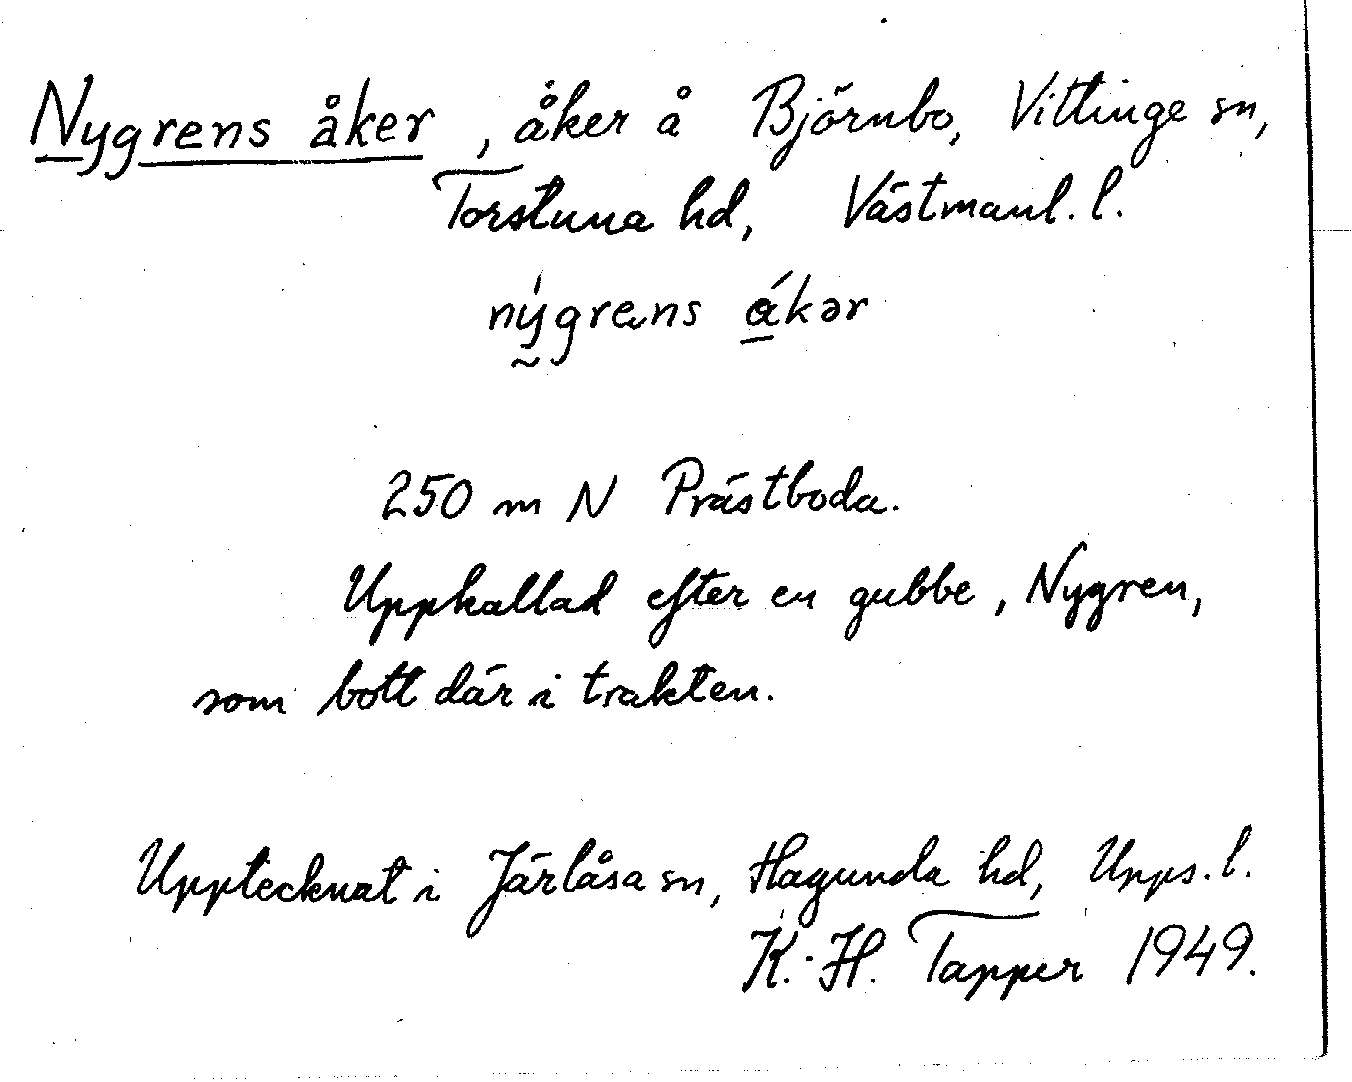 Nygrens åker, åker å Björnbo, Vittinge sn,
Torstuna hd, Västmanl. l.
nýgrens ákər
250 m N Prästboda.
Uppkallad efter en gubbe, Nygren,
som bott där i trakten.
Upptecknat i Järlåsa sn, Hagunda hd, Upps. l.
K.-H. Tapper 1949.